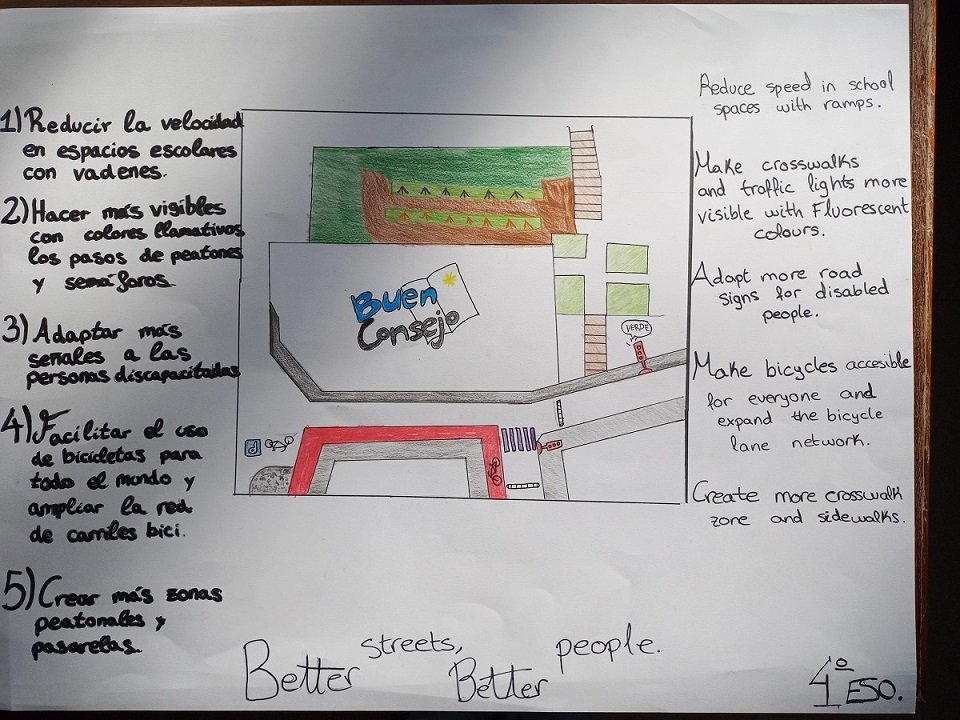 1) Reducir la velocidad
en espacios escolares
con vadenes.
2) Hacer más visibles
con colores llamativos
los pasos de peatones
y semáforos.
3) Adaptar más
señales a las
personas discapacitadas
4) Facilitar el uso
de bicicletas para
todo el mundo y
ampliar la red
de carriles bici.
5) Crear más zonas
peatonales y
pasarelas.
Buen
Consejo
VERDE
Reduce speed in school
spaces with ramps.
Make crosswalks
and traffic lights more
visible with Fluorescent
colours.
Adapt more road
signs for disabled
people.
Make bicycles accesible
for everyone and
expand the bicycle
lane network.
Create more crosswalk
zone and sidewalks.
Better streets, Better people.
4º ESO.